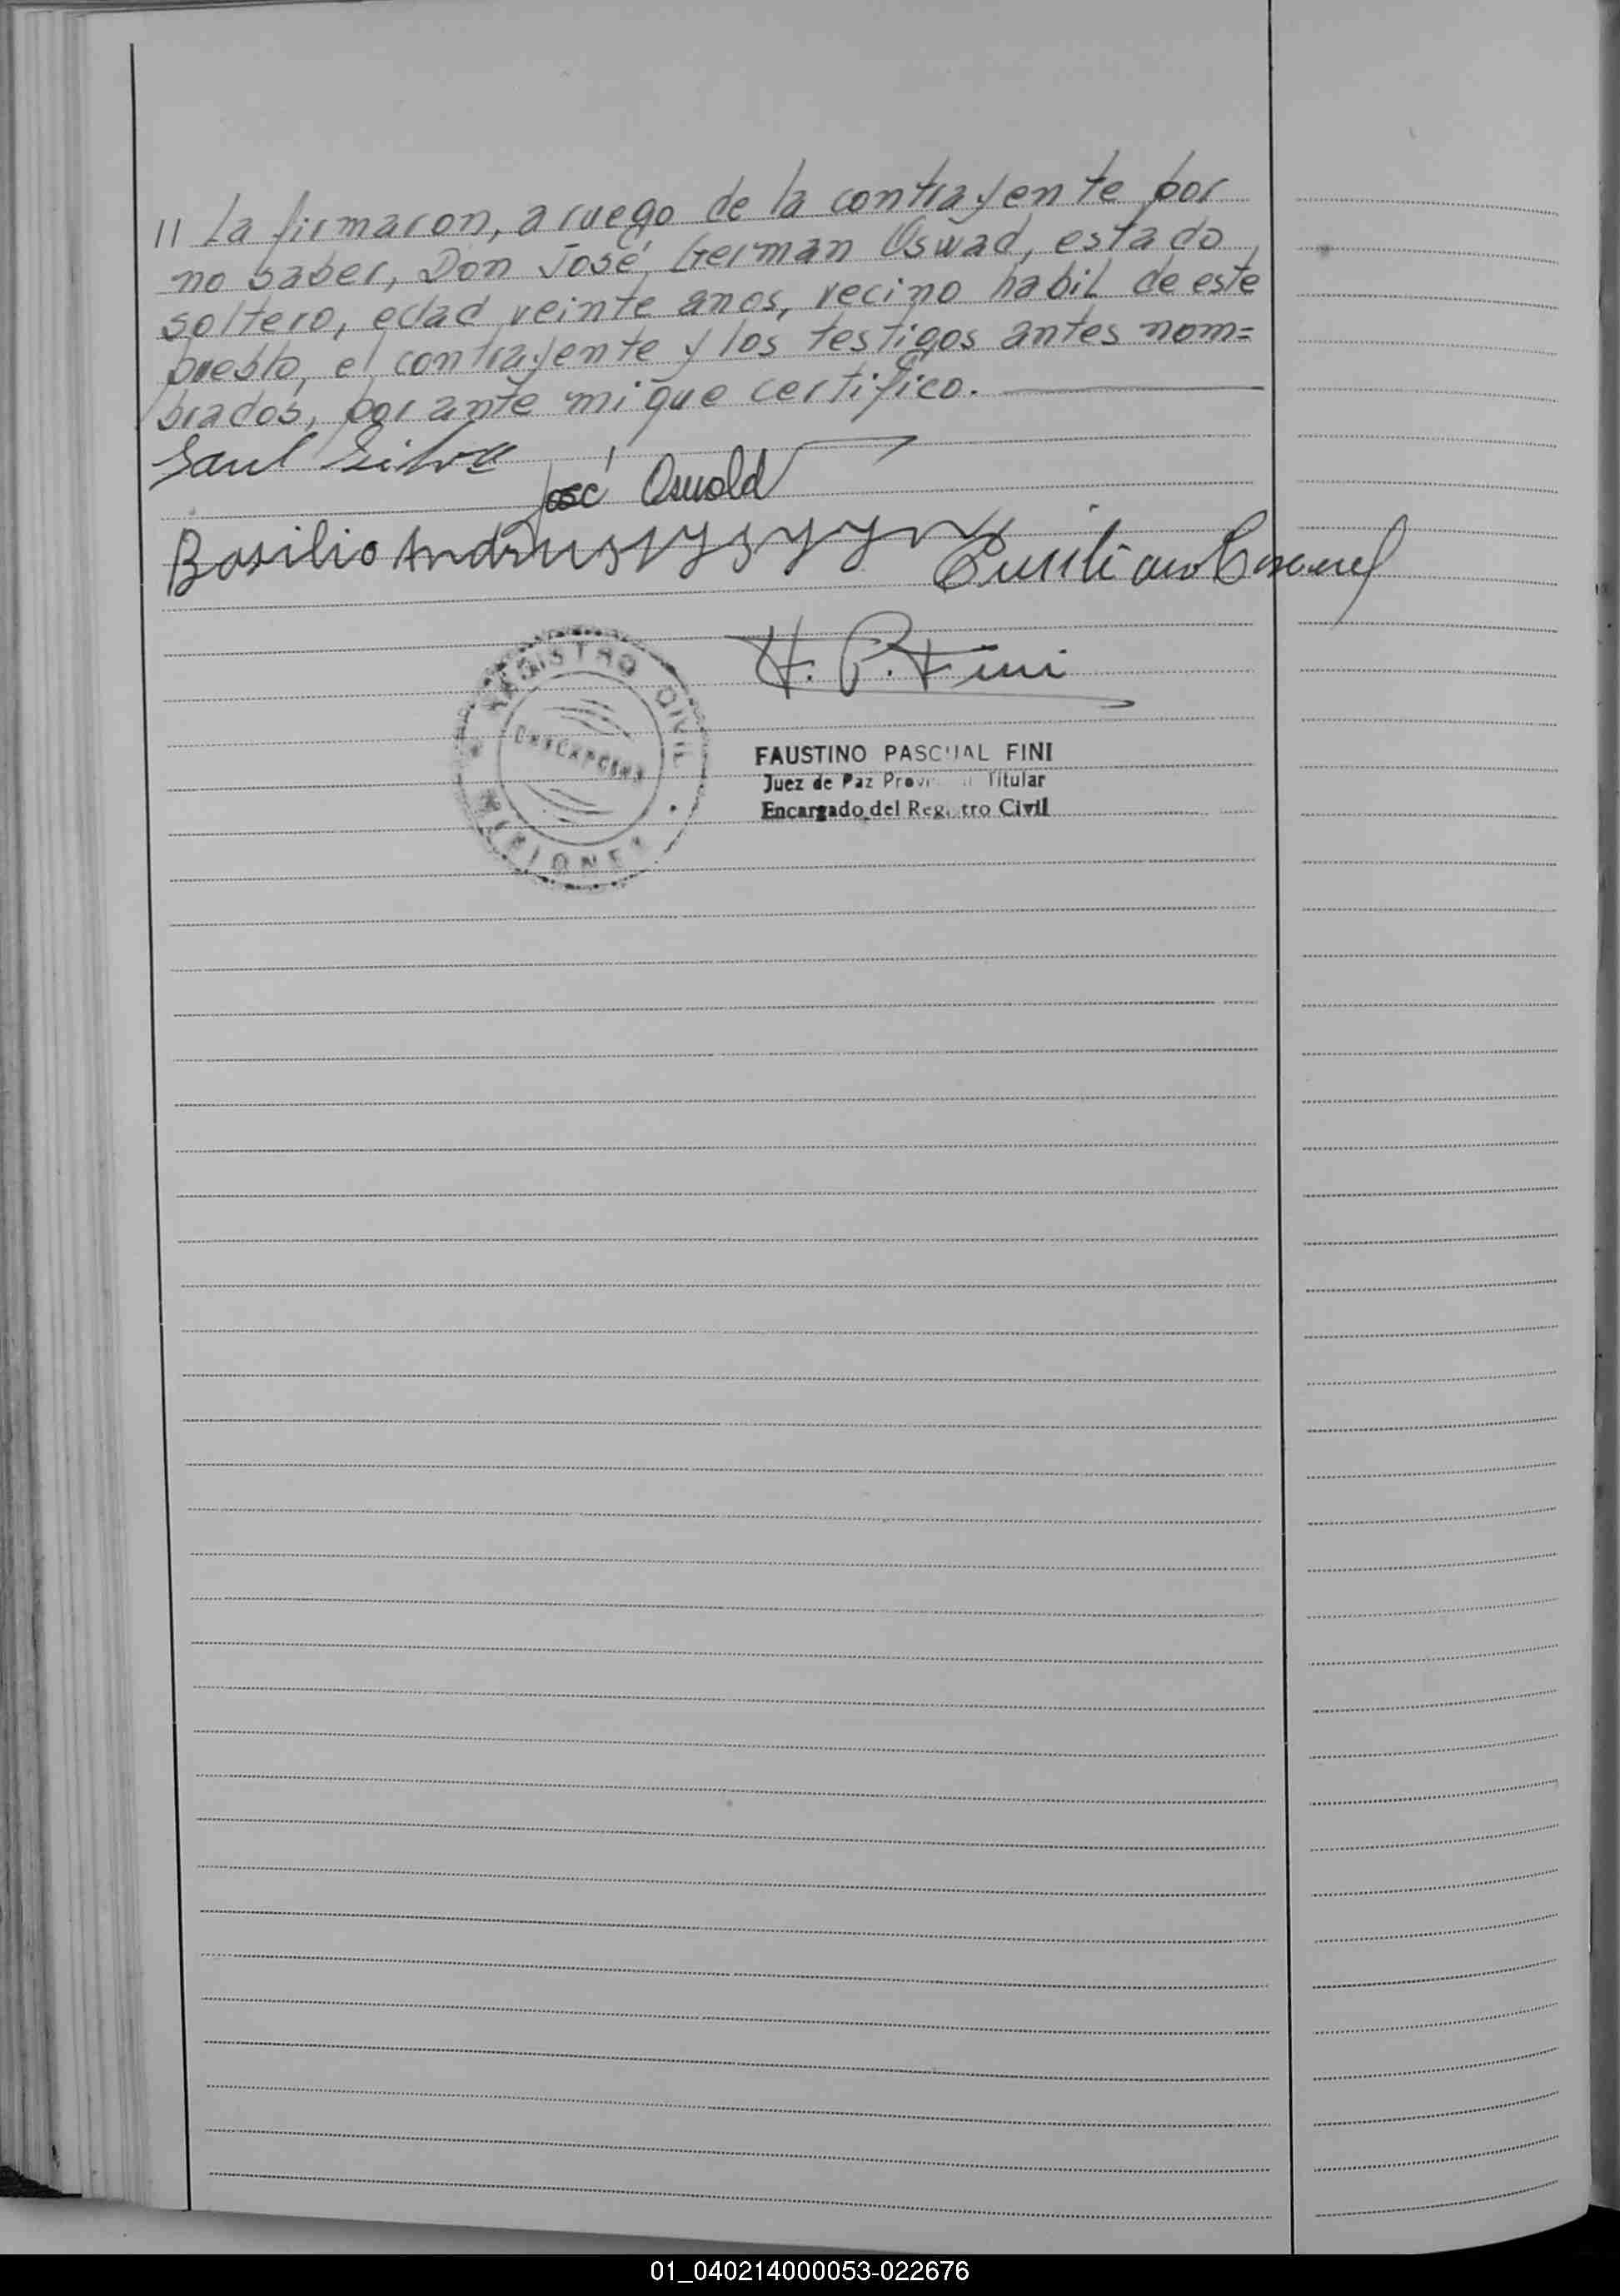 11 La firmaron, a ruego de la contrayente por
no saber, Don José German Oswad, estado
soltero, edad veinte anos, vecino habil de este
pueblo, el contrayente y los testigos antes nom=
brados, por ante mi que certifico.
Saul Silva
José Oswald
Basilio
H. P. Fini
REGISTRO CIVIL
MISIONES
FAUSTINO PASCUAL FINI
Juez de Paz Titular
Encargado del Registro Civil
01_040214000053-022676